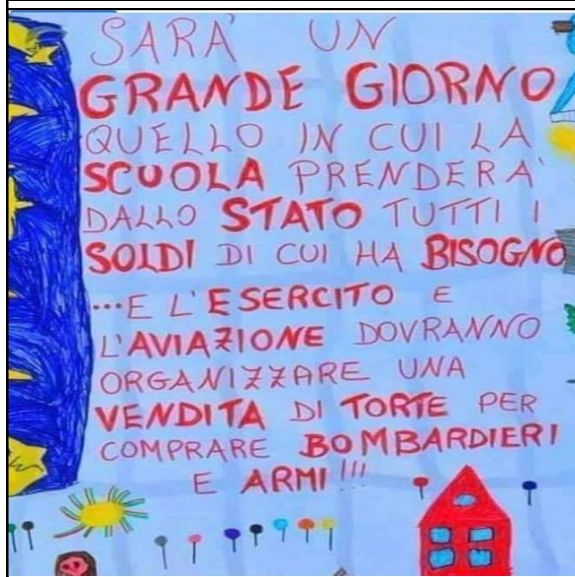 SARA' UN
GRANDE GIORNO
QUELLO IN CUI LA
SCUOLA PRENDERA'
DALLO STATO TUTTI I
SOLDI DI CUI HA BISOGNO
...E L'ESERCITO E
L'AVIAZIONE DOVRANNO
ORGANIZZARE UNA
VENDITA DI TORTE PER
COMPRARE BOMBARDIERI
E ARMI!!!